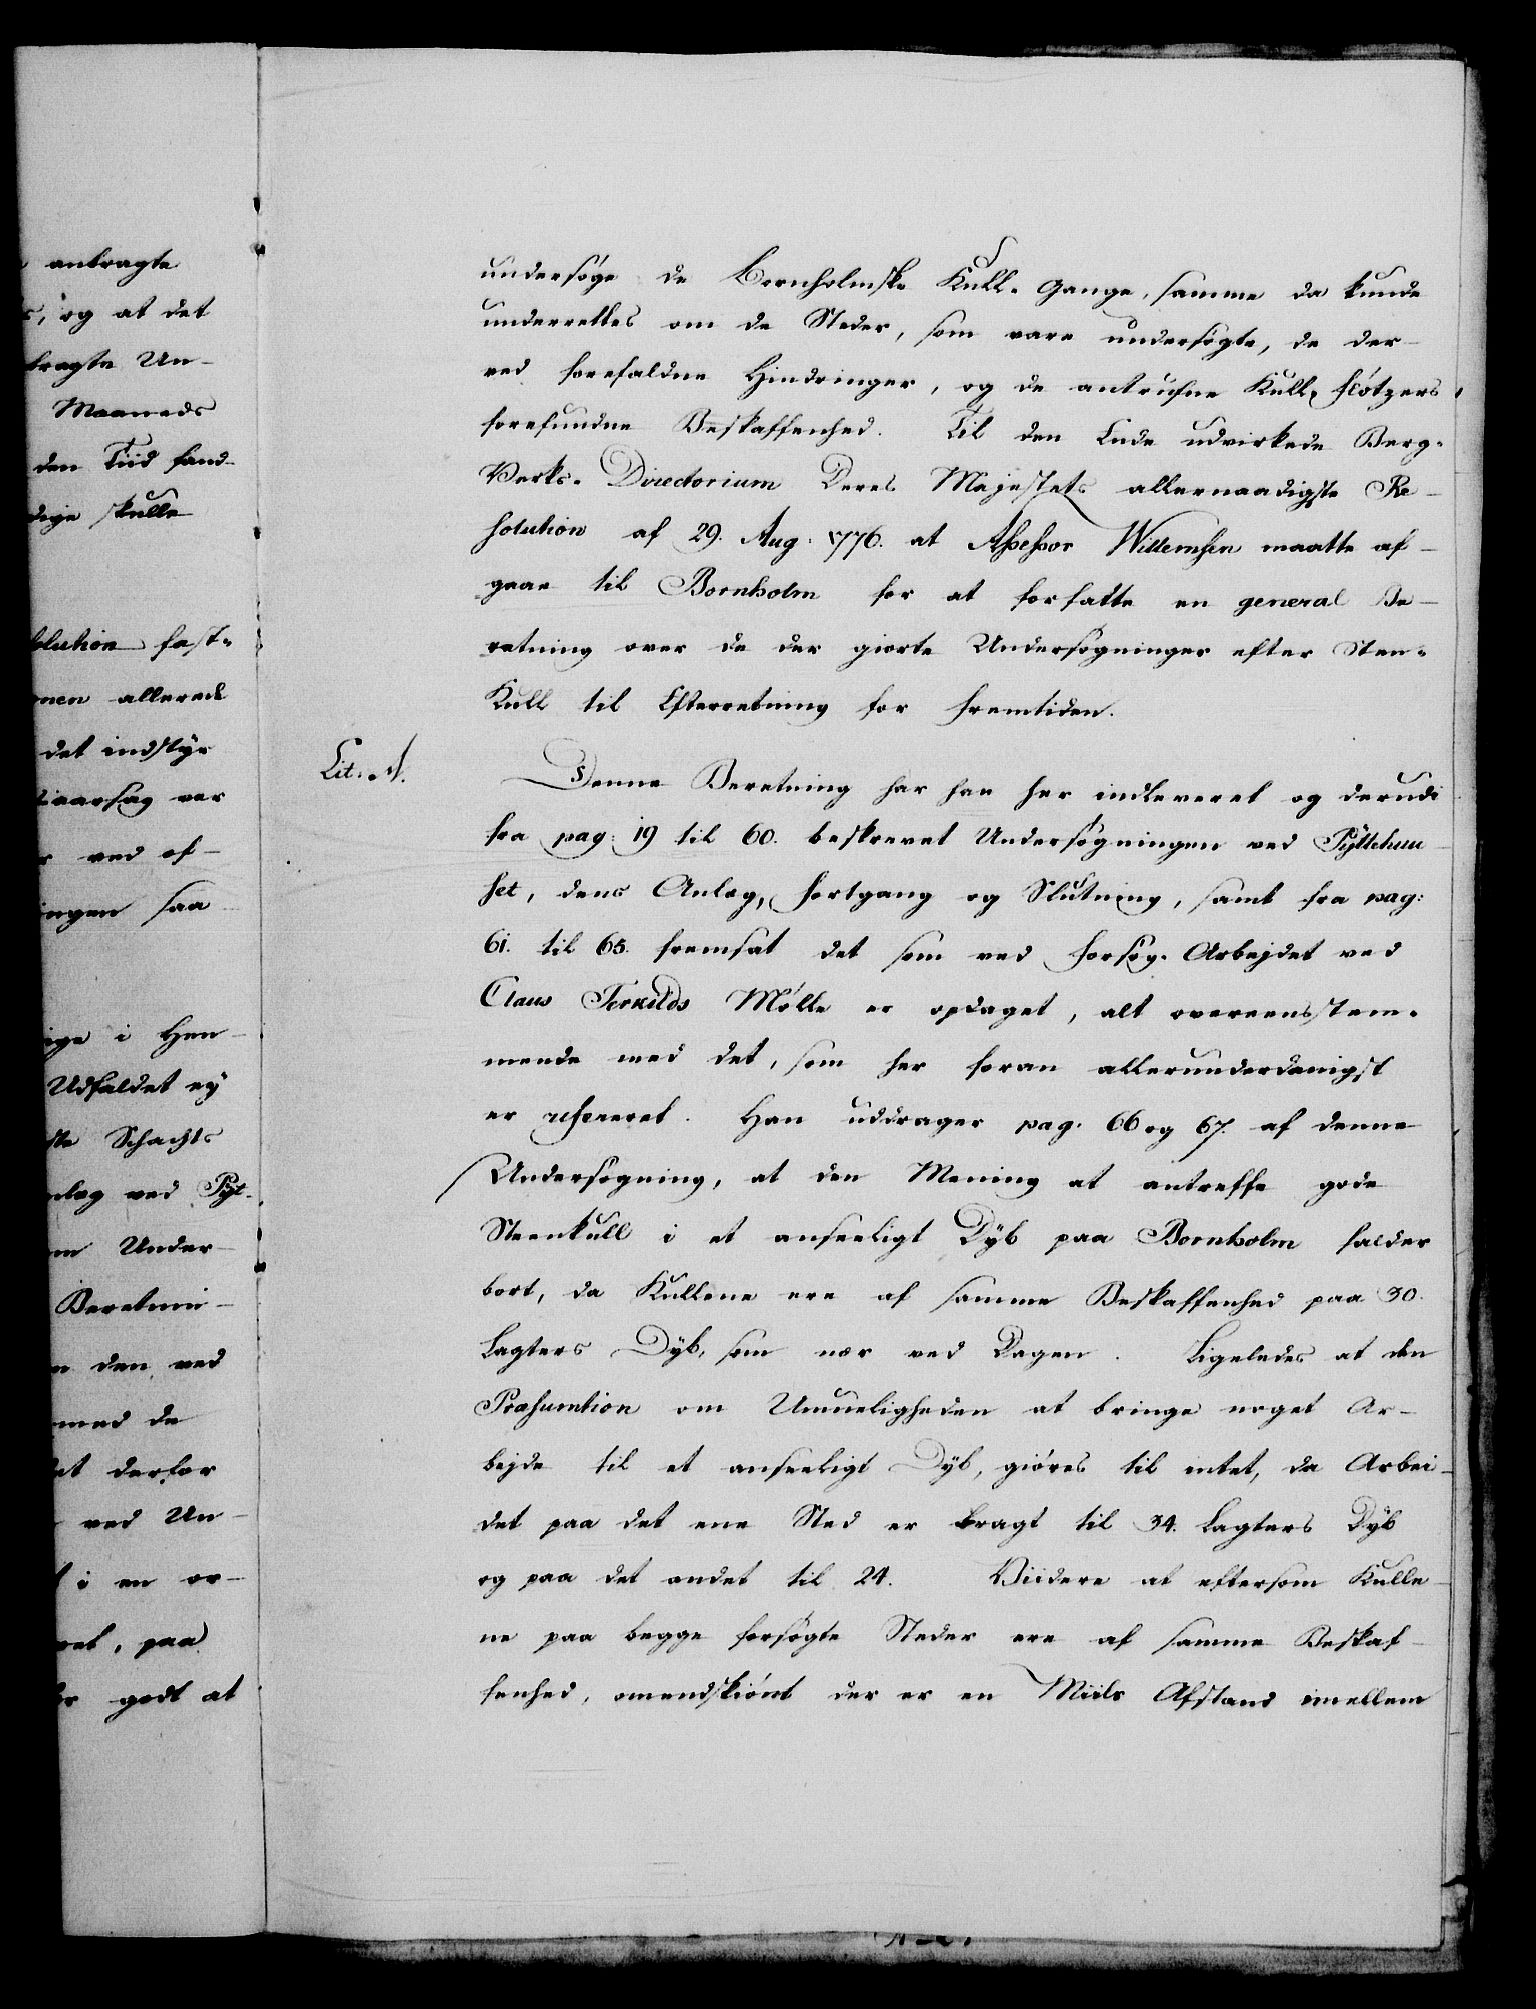 antragte
og at det
bragte Un-
Maaneds
den Tiid fand-
dige skulle
solution fast-
onen allerede
det indstyr
Aarsag var
ved af-
ingen saa
ige i Hen-
Udfaldet ej
ste Schacts
nlæg ved Pyt-
om Under-
Beretnin-
n den ved
med de
et derfor
ved Un-
i en or-
vet, paa
for godt at
undersøge de Bornholmske Kull-Gange, samme da kunde
underrettes om de Steder, som vare undersøgte, de der-
ved forefaldne Hindringer, og de antrufne Kull-Flötzers
forefundne Beskaffenhed. Til den Ende udvirkede Berg-
Verks-Directorium Deres Majestets allernaadigste Re-
solution af 29. Aug: 1776. at Assessor Willemsen maatte af-
gaae til Bornholm for at forfatte en general Be-
retning over de der giorte Undersøgninger efter Steen-
Kull til Efterretning for Fremtiden.
Lit: A.
Denne Beretning har han her indleveret og derudi
fra pag: 19 til 60. beskrevet Undersøgningen ved Pyttehuu-
set, dens Anlæg, Fortgang og Slutning, samt fra pag:
61. til 65. fremsat det som ved Forsøg-Arbejdet ved
Claus Terkilds Mølle er opdaget, alt overeensstem-
mende med det, som her foran allerunderdanigst
er refereret. Han uddrager pag: 66 og 67. af denne
Undersøgning, at den Mening at antreffe gode
Steenkull i et anseeligt Dyb paa Bornholm falder
bort, da Kullene ere af samme Beskaffenhed paa 30.
Lagters Dyb, som nær ved Dagen. Ligeledes at den
Præsumtion om Umueligheden at bringe noget Ar-
bejde til et anseeligt Dyb, giøres til intet, da Arbei-
det paa det ene Sted er bragt til 34. Lagters Dyb
og paa det andet til 24. Viidere at eftersom Kulle-
ne paa begge forsøgte Steder ere af samme Beskaf-
fenhed, omendskiønt der er en Miils Afstand imellem